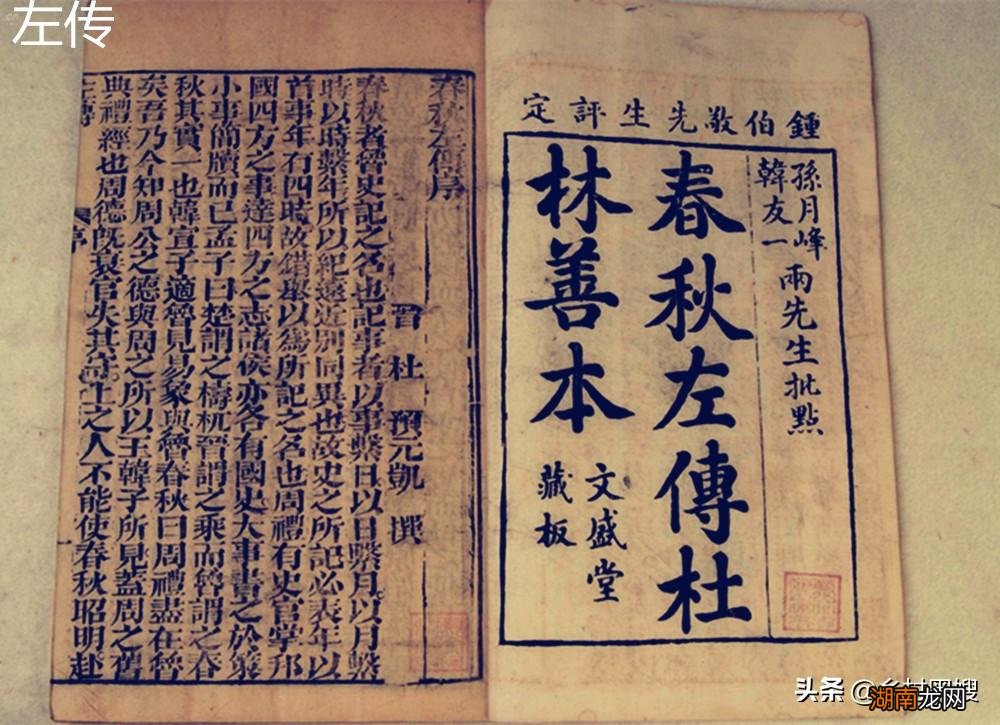 左传
鍾伯敬先生評定
孫月峰
韓友一
兩先生批點
春秋左傳杜
林善本
文盛堂
藏板
春秋左傳序
晉 杜 預元凱 撰
春秋者魯史記之名也記事者以事繫日以日繫月以月繫
時以時繫年所以紀遠近別同異也故史之所記必表年以
首事年有四時故錯舉以爲所記之名也周禮有史官掌邦
國四方之事達四方之志諸侯亦各有國史大事書之於策
小事簡牘而已孟子曰楚謂之檮杌晉謂之乘而魯謂之春
秋其實一也韓宣子適魯見易象與魯春秋曰周禮盡在魯
矣吾乃今知周公之德與周之所以王韓子所見蓋周之舊
典禮經也周德旣衰官失其守上之人不能使春秋昭明赴
序
头条
湖南龙网